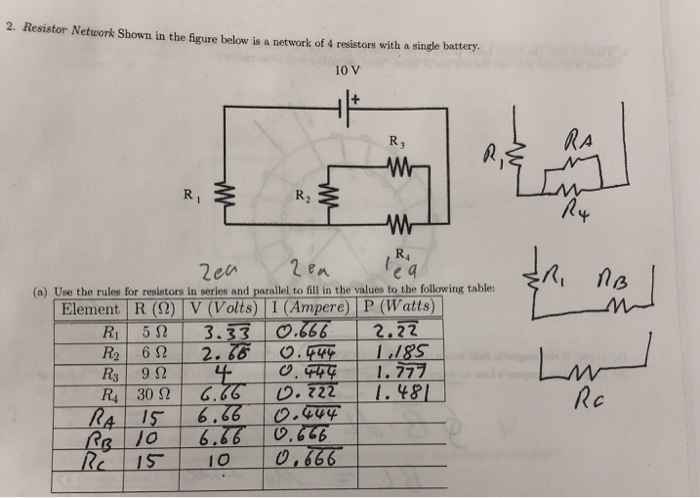 2. Resistor Network Shown in the figure below is a network of 4 resistors with a single battery.
10 V
+
R3
R1
R2
R4
R1 RA
R4
2ea 2ea 1ea
R1 RB
(a) Use the rules for resistors in series and parallel to fill in the values to the following table:
Element R (Ω) V (Volts) I (Ampere) P (Watts)
R1 5 Ω 3.33 0.666 2.22
R2 6 Ω 2.66 0.444 1.185
R3 9 Ω 4 0.444 1.777
R4 30 Ω 6.66 0.222 1.481
RA 15 6.66 0.444
RB 10 6.66 0.666
RC 15 10 0.666
RC